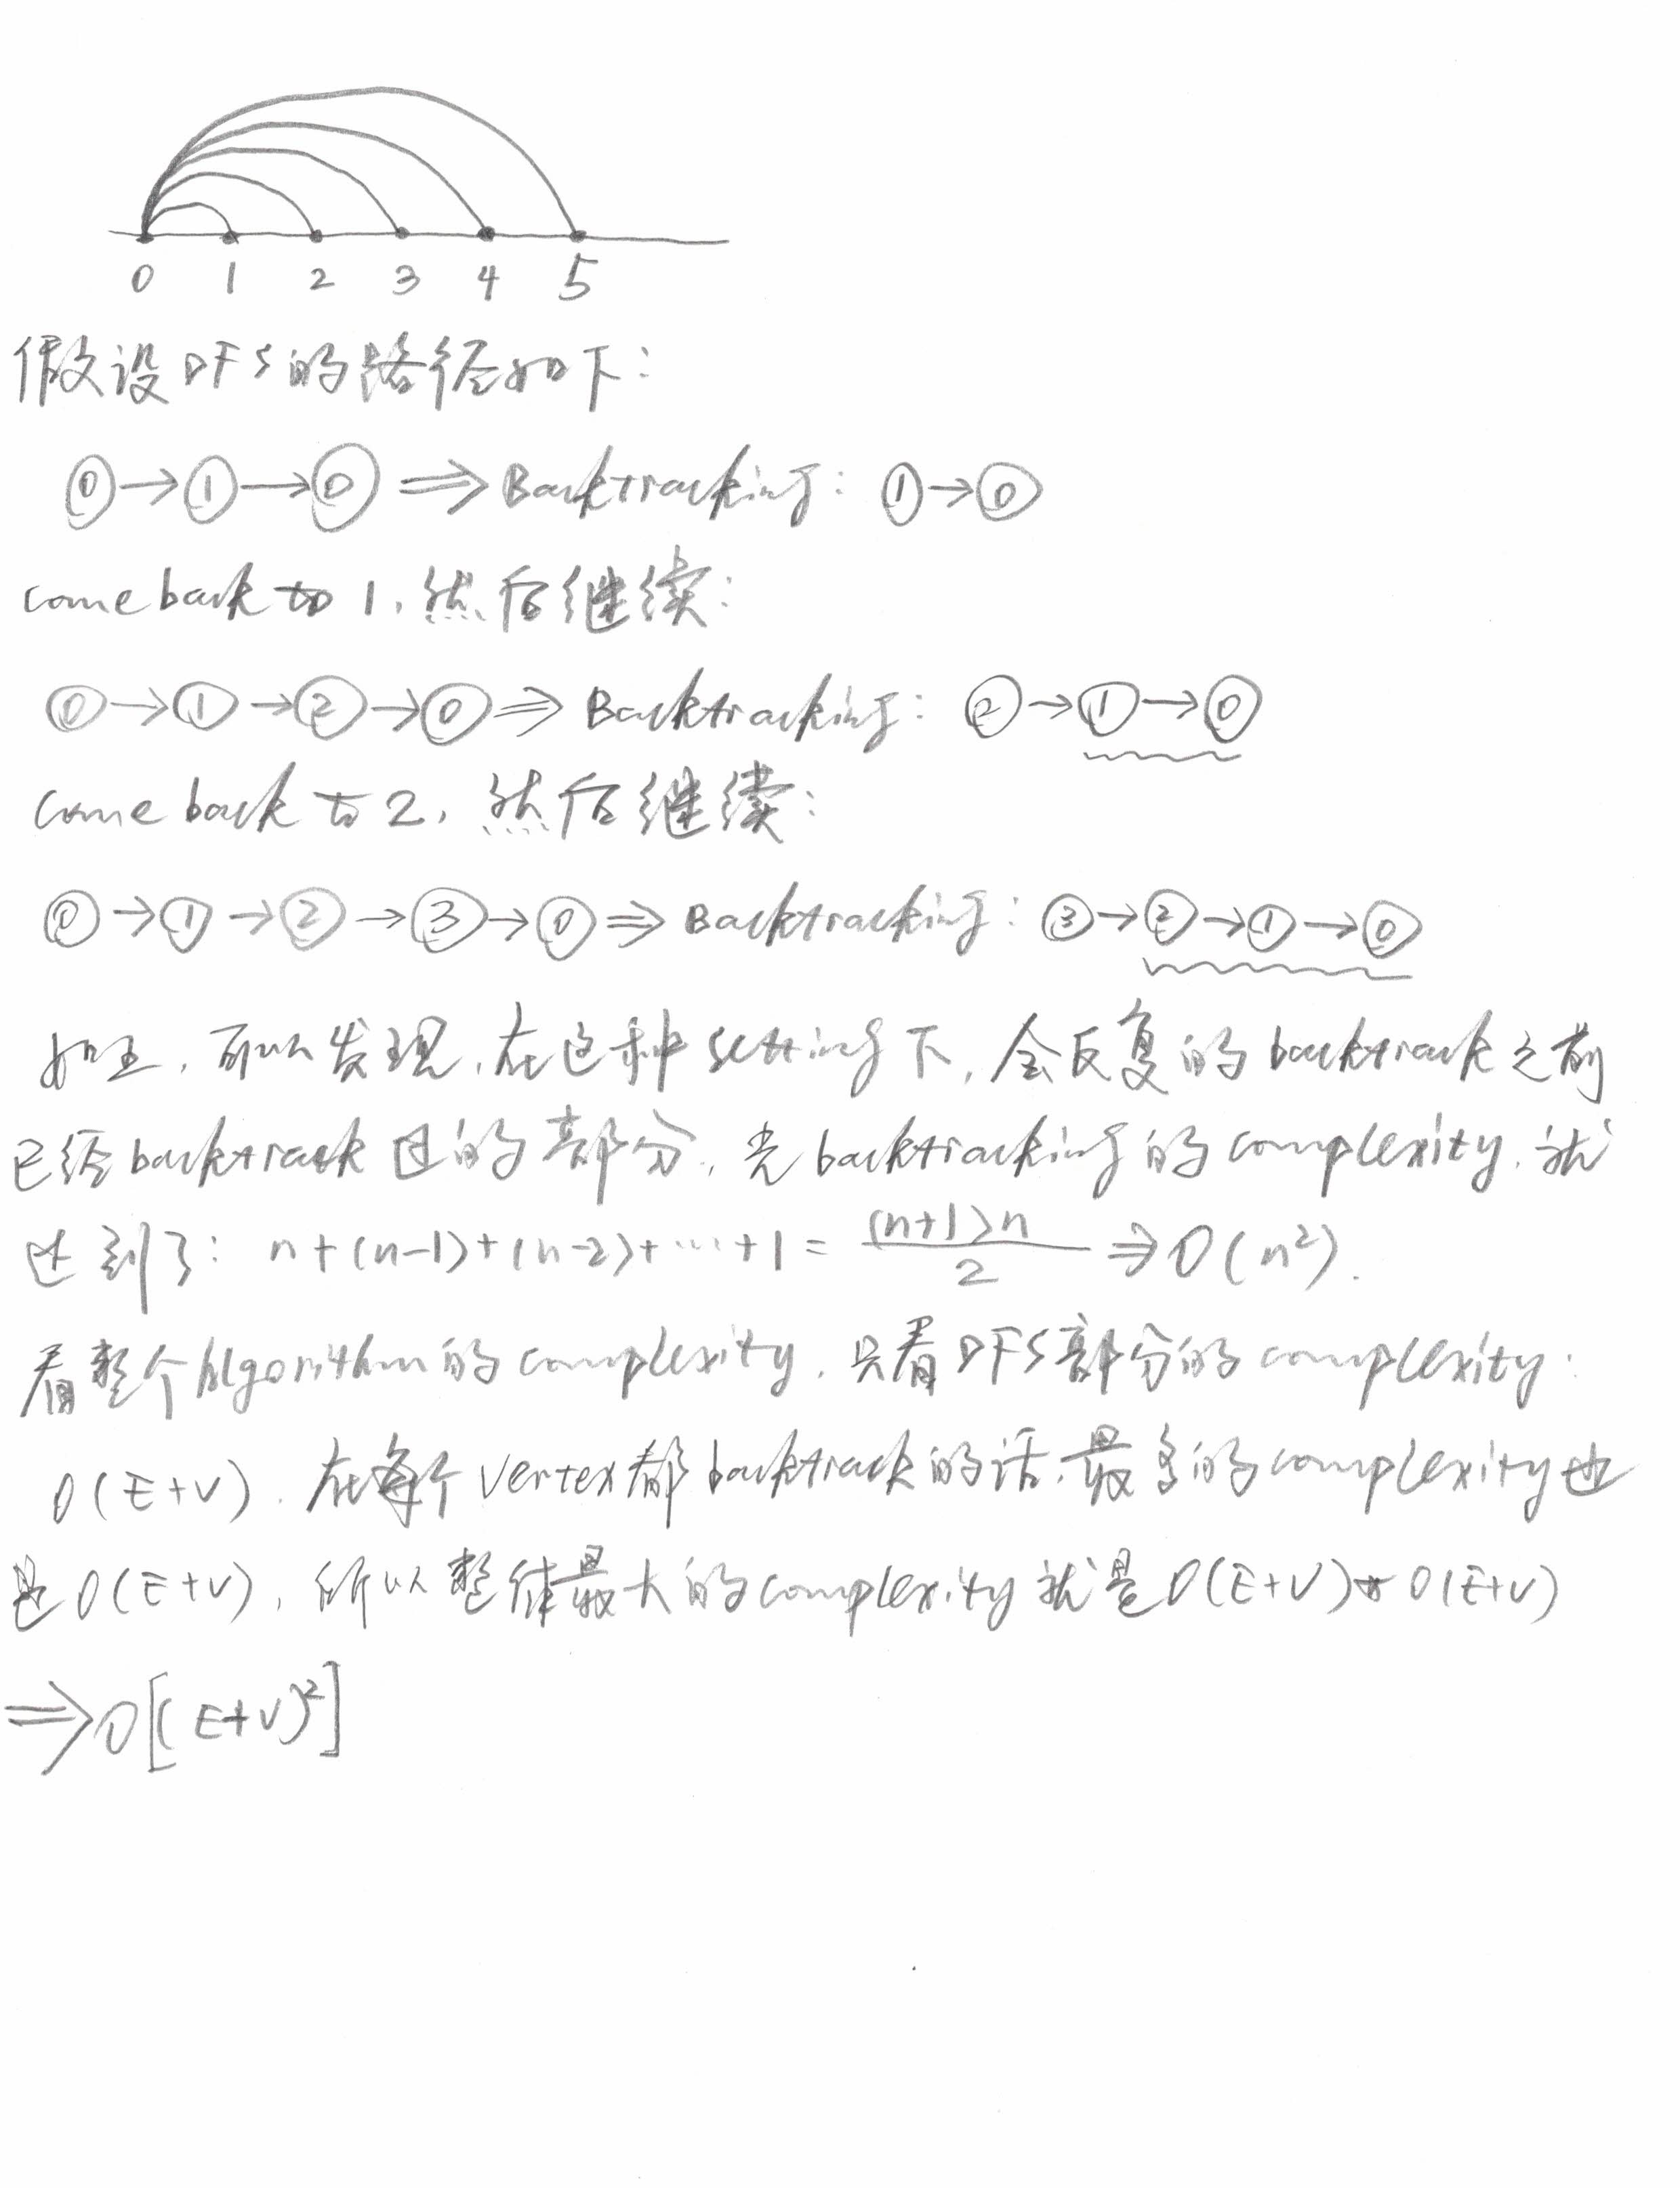 0 1 2 3 4 5
假设DFS的路径如下:
0→1→0⇒Backtracking: 1→0
come back to 1, 然后继续:
0→1→2→0⇒Backtracking: 2→1→0
come back to 2, 然后继续:
0→1→2→3→0⇒Backtracking: 3→2→1→0
如上, 可以发现, 在这种setting下, 会反复的backtrack之前
已经backtrack过的部分, 光backtracking的complexity, 就
达到了: n+(n-1)+(n-2)+…+1=(n+1)n/2⇒O(n²).
看整个Algorithm的complexity, 只看DFS部分的complexity:
O(E+V). 在每个vertex都backtrack的话, 最多的complexity也
是O(E+V), 所以整体最大的complexity就是O(E+V)*O(E+V)
⇒O[(E+V)²]